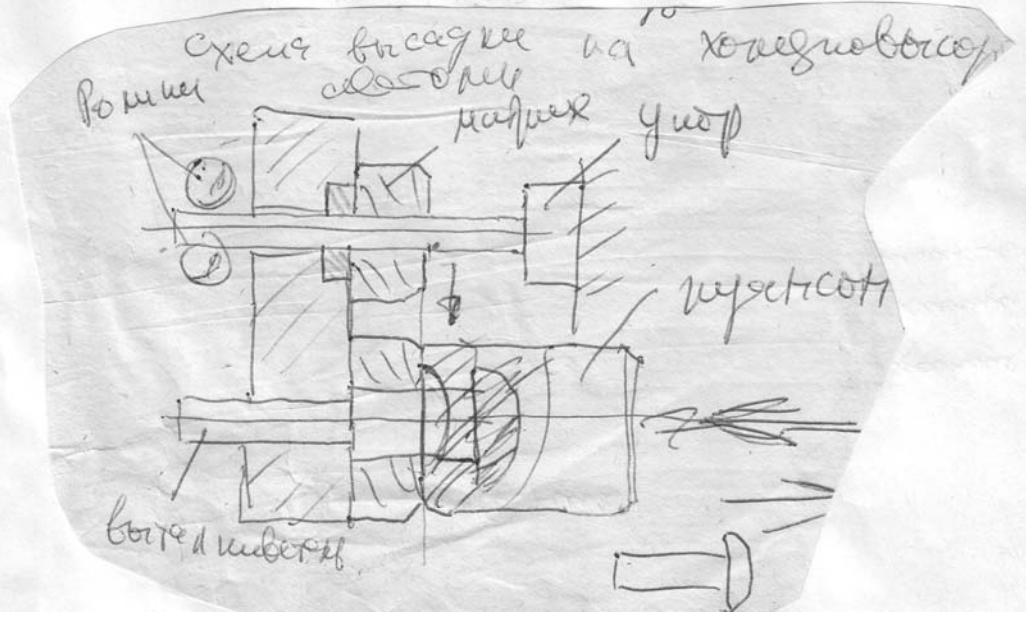 Схема высадки на холодновысад
автомате
Ролики
матрих упор
пуансон
выталкиватель